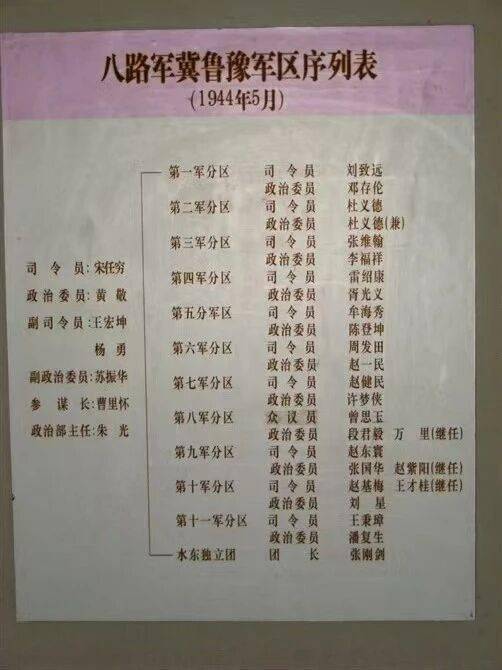 八路军冀鲁豫军区序列表
(1944年5月)
司令员:宋任穷
政治委员:黄敬
副司令员:王宏坤
杨勇
副政治委员:苏振华
参谋长:曹里怀
政治部主任:朱光
第一军分区 司令员 刘致远
政治委员 邓存伦
第二军分区 司令员 杜义德
政治委员 杜义德(兼)
第三军分区 司令员 张维翰
政治委员 李福祥
第四军分区 司令员 雷绍康
政治委员 胥光义
第五分军区 司令员 牟海秀
政治委员 陈登坤
第六军分区 司令员 周发田
政治委员 赵一民
第七军分区 司令员 赵健民
政治委员 许梦侠
第八军分区 众议员 曾思玉
政治委员 段君毅 万里(继任)
第九军分区 司令员 赵东寰
政治委员 张国华 赵紫阳(继任)
第十军分区 司令员 赵基梅 王才桂(继任)
政治委员 刘星
第十一军分区 司令员 王秉璋
政治委员 潘复生
水东独立团 团长 张刚剑